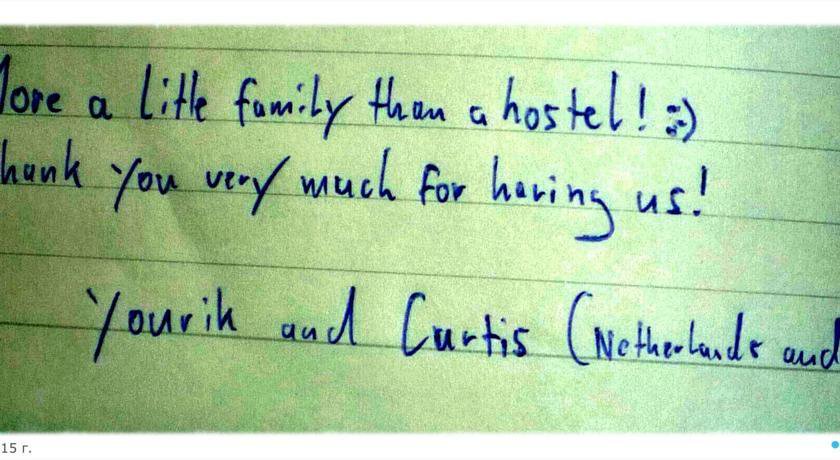 More a little family than a hostel! :-)
hank you very much for having us!
Yourik and Curtis (Netherlands and
15 г.